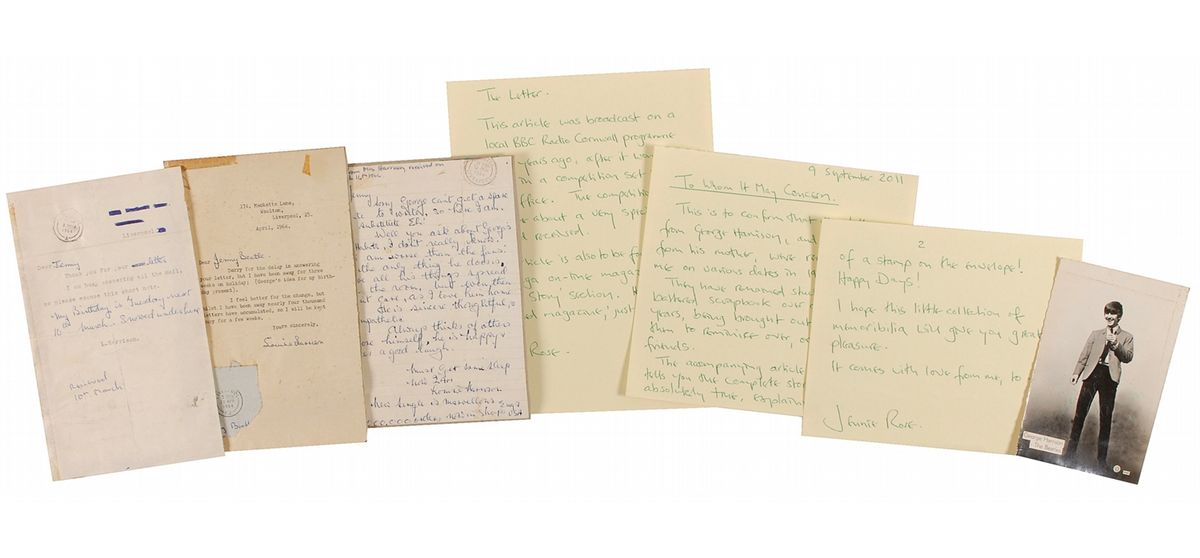 Liverpool
Dear Jenny
Thank you for your letter
I am now answering all the mail,
so please excuse this short note.
My Birthday is Tuesday next
10th March. Snowed under here
L. Harrison.
Received
10th March
174, Macketts Lane,
Woolton,
Liverpool, 25.
April, 1964.
Dear Jenny Beatle
Sorry for the delay in answering
your letter, but I have been away for three
weeks on holiday) (George's idea for my birth-
day present).
I feel better for the change, but
I have been away nearly four thousand
letters have accumulated, so I will be kept
for a few weeks.
Yours sincerely,
Louise Harrison
Mrs Harrison received on
Jenny
Sorry George can't get a spare
to write, so here I am.
Substitute
Well you ask about George's
I don't really know.
am worse than the fans
the only thing he does,
all his things spread
the room, but
care, as I love him home
He is sincere thoughtful &
sympathetic
Always thinks of others
himself, he is happy &
a good laugh.
Must get some sleep
now
Louise Harrison
New Single is marvellous
The Letter.
This article was broadcast on a
local BBC Radio Cornwall programme
years ago, after it won
in a competition set
office. The competition
about a very special
received.
is also to be fo
on-line magaz
Story' section.
magazine,' just
Rose.
9 September 2011
To Whom It May Concern.
This is to confirm that
from George Harrison, and
from his mother, were re
me on various dates in 19
They have remained stuck
battered scrapbook over
years, being brought out
them to reminisce over, or
friends.
The accompanying article
tells you the complete sto
absolutely true, explain
2
of a stamp on the envelope!
Happy Days!
I hope this little collection of
memoribilia will give you great
pleasure.
It comes with love from me, to
Jennie Rose.
George Harrison
The Beatles